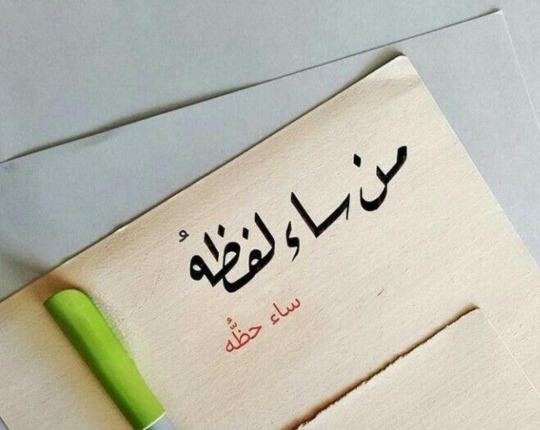 من ساء لفظهُ
ساء حظُّه